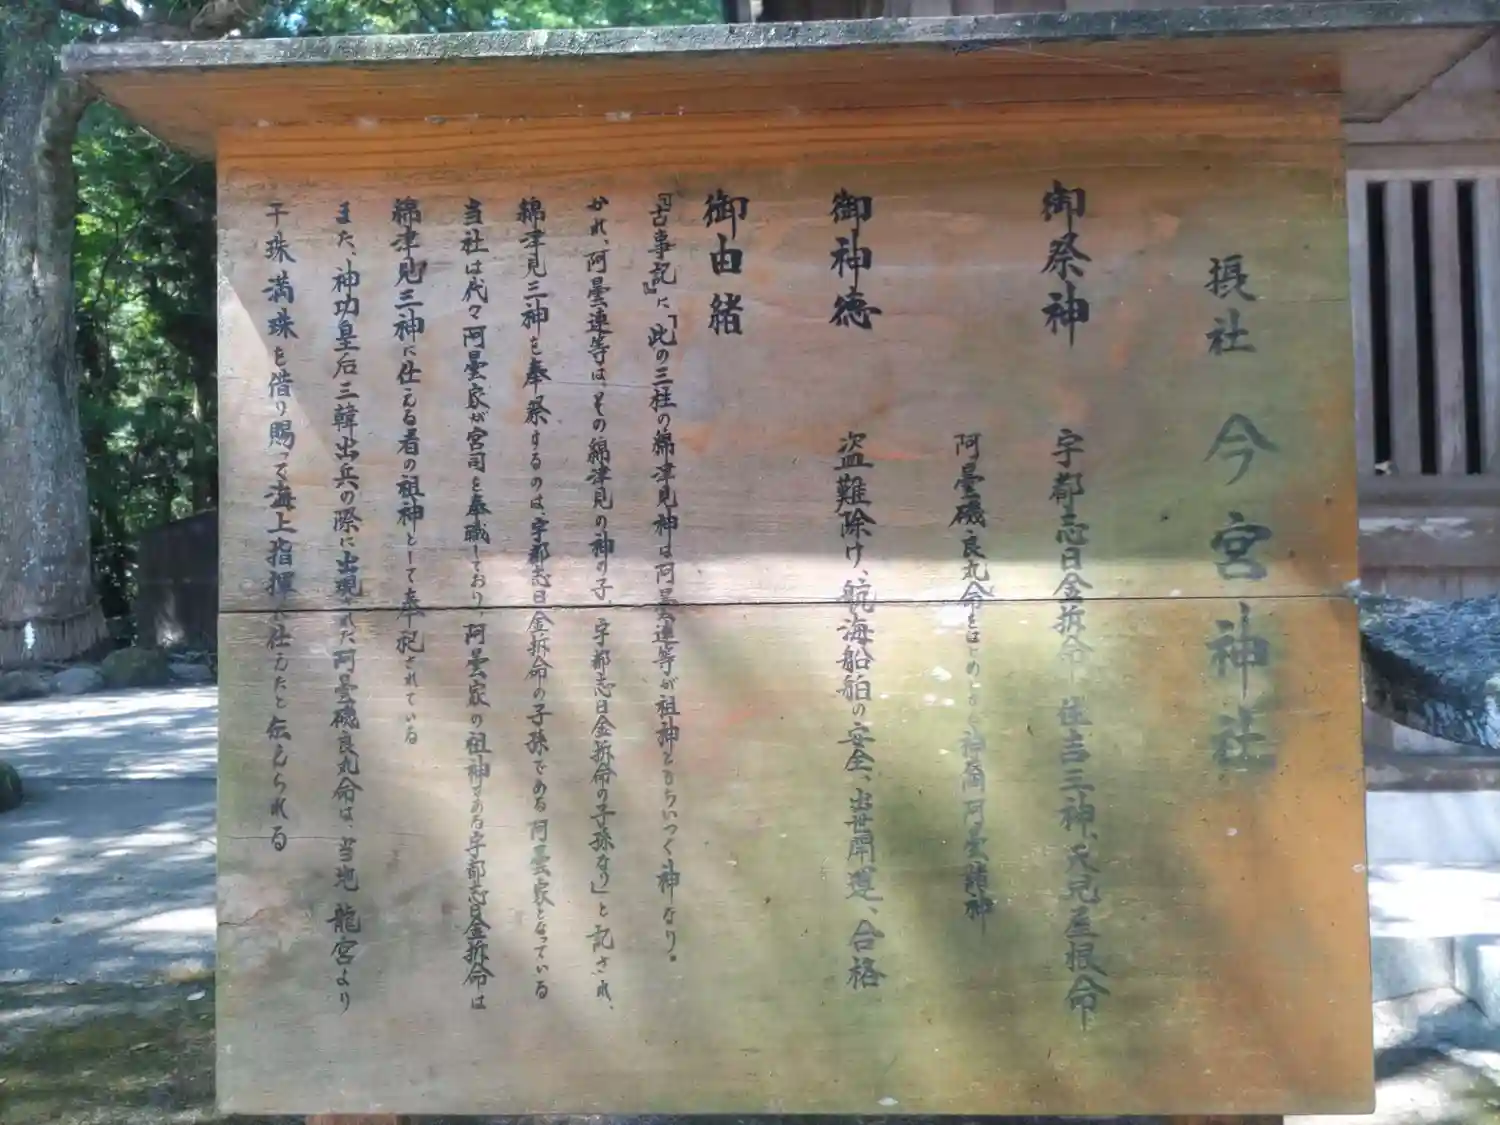 摂社 今宮神社
御祭神 宇都志日金拆命 住吉三神、天児屋根命
阿曇磯良丸命をはじめとする神裔阿曇諸神
御神徳 盗難除け、航海船舶の安全、出世開運、合格
御由緒
『古事記』に「此の三柱の綿津見神は阿曇連等が祖神ともちいつく神なり。
かれ、阿曇連等は、その綿津見の神の子、宇都志日金拆命の子孫なり」と記され、
綿津見三神を奉祭するのは、宇都志日金拆命の子孫である阿曇家となっている
当社は代々阿曇家が宮司を奉職しており、阿曇家の祖神である宇都志日金拆命は
綿津見三神に仕える者の祖神として奉祀されている
また、神功皇后三韓出兵の際に出現された阿曇磯良丸命は、当地 龍宮より
干珠満珠を借り賜って海上指揮に仕えたと伝えられる